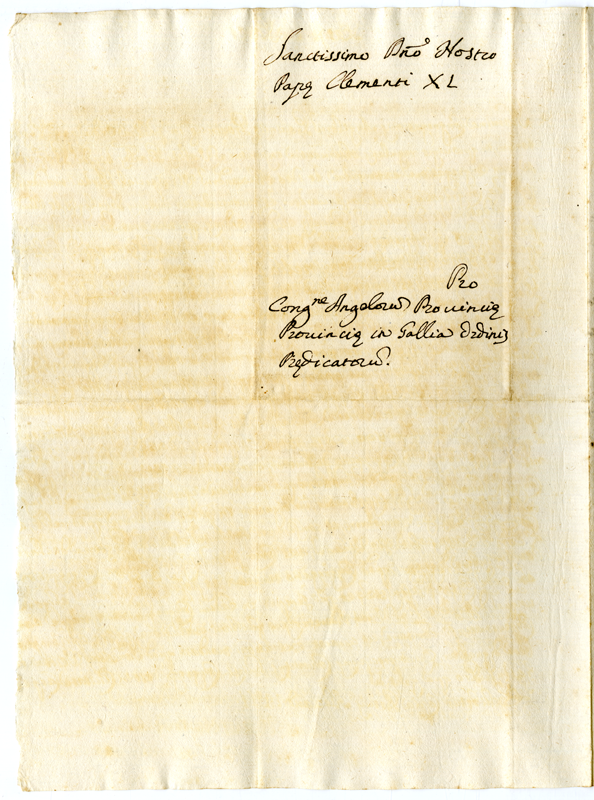 Sanctissimo Dnõ Nostro
Papę Clementi XI
Pro
Congne Angeloru Prouincię
Prouincię in Gallia Ordinis
Predicatoru.